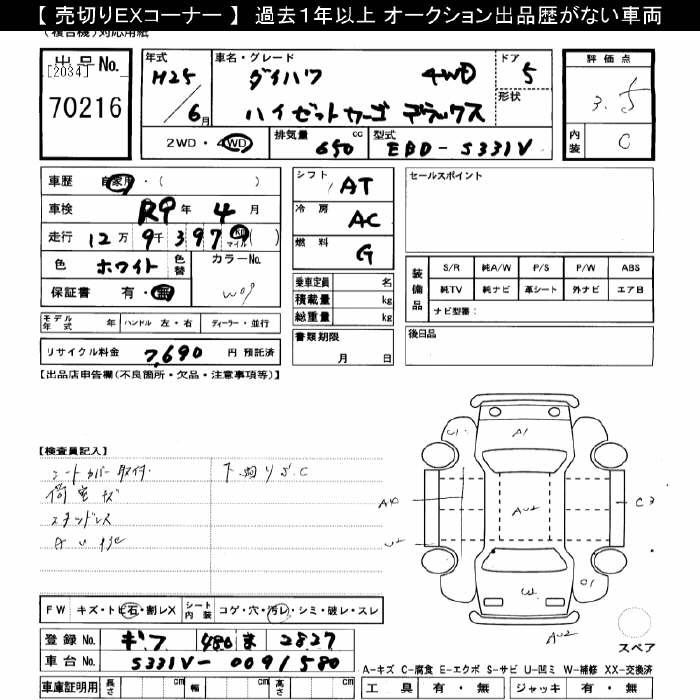 【 売切りEXコーナー 】 過去1年以上 オークション出品歴がない車両
(複合機)対応用紙
出品No.
[2034]
70216
年式
H25/6月
車名・グレード
ダイハツ 4WD
ハイゼットカーゴ デラックス
ドア
5
形状
2WD・4WD
排気量
650 cc
型式
EBD-S331V
評価点
3.5
内装
C
車歴 自家用・( )
車検 R9年4月
走行 12万9千397 マイル( )
色 ホワイト 色替
カラーNo.
W09
保証書 有・無
モデル年式 年 ハンドル 左・右 ディーラー・並行
リサイクル料金 7,690 円 預託済
シフト AT
冷房 AC
燃料 G
乗車定員 名
積載量 kg
総重量 kg
書類期限
月 日
セールスポイント
装備品
S/R 純A/W P/S P/W ABS
純TV 純ナビ 革シート 外ナビ エアB
ナビ型番:
後日品
【出品店申告欄(不良箇所・欠品・注意事項等)】
【検査員記入】
シートカバー取付 下廻りS.C
荷室キズ
スタッドレス
A1
AU2
C2
W
AU2
FW キズ・トビ石・割レX シート内装 コゲ・穴・汚レ・シミ・破レ・スレ
登録 No. ギフ 480 ま 2827
車台 No. S331V-0091580
車庫証明用 長さ cm 幅 cm 高さ cm
スペア
A-キズ C-腐食 E-エクボ S-サビ U-凹ミ W-補修 XX-交換済
工具 有・無 ジャッキ 有・無